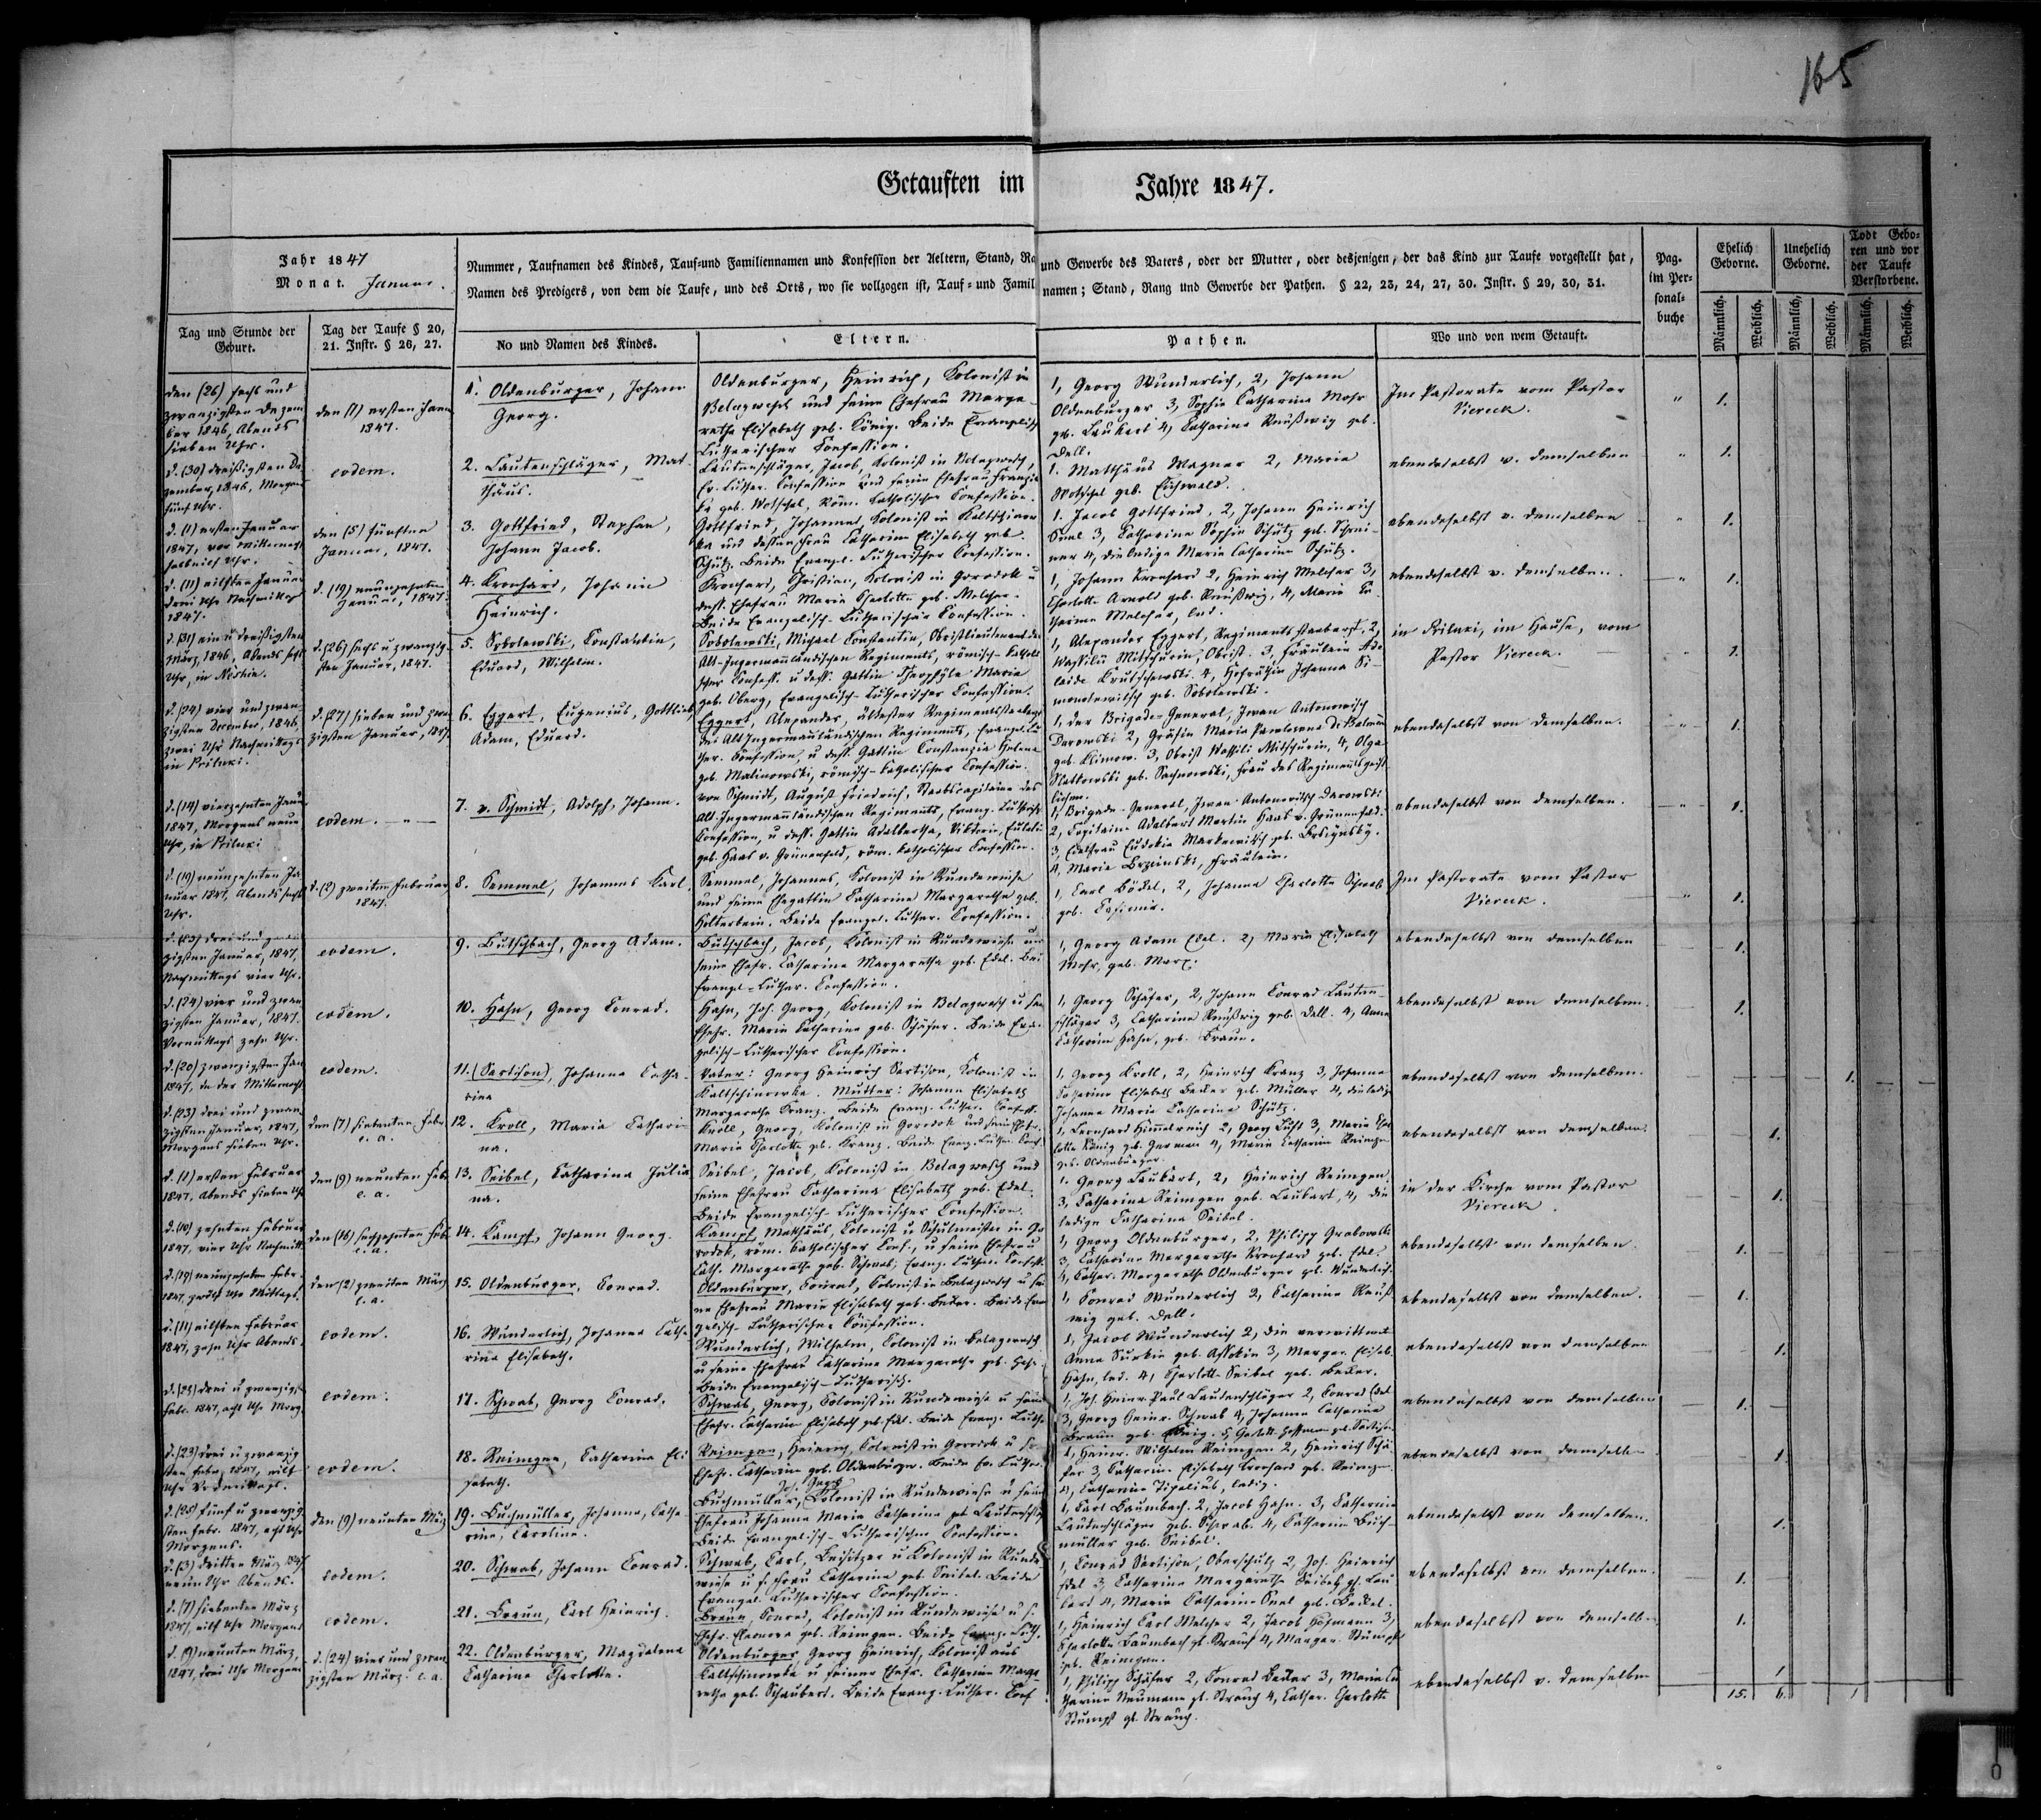 165
Getauften im Jahre 1847.
Jahr 1847
Monat. Januar.
Nummer, Taufnamen des Kindes, Tauf- und Familiennamen und Konfession der Aeltern, Stand, Ra und Gewerbe des Vaters, oder der Mutter, oder desjenigen, der das Kind zur Taufe vorgestellt hat,
Namen des Predigers, von dem die Taufe, und des Orts, wo sie vollzogen ist, Tauf- und Famil namen; Stand, Rang und Gewerbe der Pathen. § 22, 23, 24, 27, 30. Instr. § 29, 30, 31.
Pag. im Per-
sonal-
buche
Ehelich
Geborne.
Unehelich
Geborne.
Todt Gebo-
ren und vor
der Taufe
Verstorbene.
Männlich. Weiblich. Männlich. Weiblich. Männlich. Weiblich.
Tag und Stunde der
Geburt.
Tag der Taufe § 20,
21. Instr. § 26, 27.
No und Namen des Kindes.
Eltern.
Pathen.
Wo und von wem Getauft.
den (26) sechs und
zwanzigsten Dezem
ber 1846, Abends
sieben Uhr.
den (1) ersten Janu
1847.
1. Oldenburger, Johann
Georg.
Oldenburger, Heinrich, Kolonist in
Belagwesch und seine Ehefrau Marga-
retha Elisabeth geb. König. Beide Evangelisch
Lutherischer Confession.
1, Georg Wunderlich, 2, Johann
Oldenburger 3, Sophia Catharina Mohr
geb. Laukart 4, Catharina Reußwig geb.
Dell.
Im Pastorate vom Pastor
Viereck.
" 1.
d. (30) dreißigsten De
zember, 1846, Morgens
fünf Uhr.
eodem.
2. Lautenschläger, Mat
thäus.
Lautenschläger, Jacob, Kolonist in Belagwesch,
Ev. Luther. Confession und seine Ehefrau Franzis
ka geb. Wotschel, Röm. Catholischer Confession.
1. Matthäus Wagner 2, Maria
Wotschel geb. Eichwald.
ebendaselbst v. demselben
" 1.
d. (1) ersten Januar
1847, vor Mitternacht
halb eilf Uhr.
den (5) fünften
Januar, 1847.
3. Gottfried, Stephan,
Johann Jacob.
Gottfried, Johannes, Kolonist in Kaltschinow
ka und dessen Frau Catharina Elisabeth geb.
Schütz. Beide Evangel. Lutherischer Confession.
1. Jacob Gottfried, 2, Johann Heinrich
3, Catharina Sophia Schütz geb.
4, die ledige Maria Catharina Schütz.
ebendaselbst v. demselben
" 1.
d. (11) eilften Januar
drei Uhr Nachmittags
1847.
d. (19) neunzehnten
Januar, 1847
4. Kronhard, Johann
Heinrich.
Kronhard, Christian, Kolonist in Gorodok u
dess. Ehefrau Maria Charlotte geb. Melcher.
Beide Evangelisch-Lutherischer Confession.
1, Johann Kronhard 2, Heinrich Melcher 3,
Charlotte Arnold geb. Reußwig, 4, Maria Ca
tharina Melcher, led.
ebendaselbst v. demselben.
" 1.
d. (31) ein u dreißigsten
März, 1846, Abends sechs
Uhr, in
d. (26) sechs u zwanzig-
sten Januar, 1847.
5. Sobolewski, Constantin,
Eduard, Wilhelm.
Sobolewski, Michael Constantin, Obristlieutenant des
Alt-Ingermanländischen Regiments, römisch-katholi
scher Confess. u dess. Gattin Theophile Maria
geb. Oberg, Evangelisch-Lutherischer Confession.
1, Alexander Eggert, Regiments Staabarzt, 2,
Wassilü Mitschurin, Obrist. 3, Fräulein Ade
laide 4, Hofräthin Johanna Si-
monowitsch geb. Sobolewski.
in Priluki, im Hause, vom
Pastor Viereck.
" 1.
d. (24) vier und zwan
zigsten December, 1846,
zwei Uhr Nachmittags
in Priluki.
d. (27) sieben und zwan
zigsten Januar, 1847.
6. Eggert, Eugenius, Gottlieb,
Adam, Eduard.
Eggert, Alexander, ältester Regimentsstaabarzt
des Alt Ingermanländischen Regiments, Evangel. Lu
ther. Confession, u dess. Gattin Constanzia Helena
geb. Malinowski, römisch-katholischer Confession.
1, der Brigade-General, Iwan Antonowitsch
Darowski 2, Gräfin Maria Pawlowna De Balmen
geb. Klimow. 3, Obrist Wassili Mitschurin, 4, Olga
Slatkowski geb. Sachnowski, Frau des Regimentsgeist
lichen.
ebendaselbst von demselben.
" 1.
d. (14) vierzehnten Janu
1847, Morgens neun
Uhr, in Priluki
eodem. — " —
7. v. Schmidt, Adolph, Johann.
von Schmidt, August Friedrich, Staabscapitaine des
Alt-Ingermanländischen Regiments, Evang. Lutherisch
Confession, u dess. Gattin Adalbertha, Viktoria, Eulalia
geb. Haas v. Grünenfeld, röm. katholischer Confession.
1, Brigade-General, Iwan Antonowitsch Darowski
2, Capitain Adalbert Martin Haas v. Grünenfeld.
3, Edelfrau Eudokia Markewitsch geb.
4, Maria Brzeinski, Fräulein.
ebendaselbst von demselben.
" 1.
d. (19) neunzehnten Ja
nuar 1847, Abends sechs
Uhr.
d. (2) zweiten Februar
1847.
8. Semmel, Johannes Karl.
Semmel, Johannes, Kolonist in Rundewiese
und seine Ehegattin Catharina Margaretha geb.
Halterbein. Beide Evangel. Luther. Confession.
1, Carl Böckel, 2, Johanna Charlotte Schwab
geb. Casimir.
Im Pastorate vom Pastor
Viereck.
" 1.
d. (23) drei und zwan
zigsten Januar, 1847,
Nachmittags vier Uhr.
eodem.
9. Butschbach, Georg Adam.
Butschbach, Jacob, Kolonist in Rundewiese und
seine Ehefr. Catharina Margaretha geb. Edel. Bei
Evangel-Luther. Confession.
1, Georg Adam Edel. 2, Maria Elisabeth
Mohr, geb. Marx.
ebendaselbst von demselben
— 1.
d. (24) vier und zwan
zigsten Januar, 1847.
Vormittags zehn Uhr.
eodem.
10. Hahn, Georg Conrad.
Hahn, Joh. Georg, Kolonist in Belagwesch u sei
Ehefr. Maria Catharina geb. Schäfer. Beide Evan-
gelisch-Lutherischer Confession.
1, Georg Schäfer, 2, Johann Conrad Lauten-
schläger 3, Catharina Reußwig geb. Dell. 4, Anna
Catharina Hahn, geb. Braun.
ebendaselbst von demselben.
— 1.
d. (20) zwanzigsten Jan
1847, in der Mitternacht
eodem.
11. (Sartison), Johanna Catha-
rina
Vater: Georg Heinrich Sartison, Kolonist in
Kaltschinowka. Mutter: Johanna Elisabeth
Margaretha Kranz. Beide Evang. Luther. Confess.
1, Georg Kroll, 2, Heinrich Kranz 3, Johanna
Catharina Elisabeth Becker geb. Müller 4, die ledige
Johanna Maria Catharina Schütz.
ebendaselbst von demselben.
1.
d. (23) drei und zwan
zigsten Januar, 1847,
Morgens sieben Uhr.
den (7) siebenten Febr
e. a.
12. Kroll, Maria Cathari
na.
Kroll, Georg, Kolonist in Gorodok und seine Ehefr.
Maria Charlotte geb. Kranz. Beide Evang. Luther. Conf.
1, Leonhard Himmelreich 2, Georg Luft 3, Maria Char
lotte König geb. German 4, Maria Catharina Reimgen
geb. Oldenburger.
ebendaselbst von demselben.
1.
d. (1) ersten Februar
1847, Abends sieben Uhr
den (9) neunten Febr
e. a.
13. Seibel, Catharina Julia
na.
Seibel, Jacob, Kolonist in Belagwesch und
seine Ehefrau Catharina Elisabeth geb. Edel.
Beide Evangelisch-Lutherischer Confession.
1. Georg Laukart, 2, Heinrich Reimgen,
3, Catharina Reimgen geb. Laukart, 4, die
ledige Catharina Seibel.
in der Kirche vom Pastor
Viereck.
1.
d. (10) zehnten Februar
1847, vier Uhr Nachmitt.
den (16) sechzehnten Feb.
e. a.
14. Kampf, Johann Georg.
Kampf, Matthäus, Colonist u Schulmeister in Go
rodok, röm. Catholischer Conf., u seine Ehefrau
Cath. Margaretha geb. Schwab, Evang. Luther. Confess.
1, Georg Oldenburger, 2, Philipp Grabowski
3, Catharina Margaretha Kronhard geb. Edel,
4, Cathar. Margaretha Oldenburger geb. Wunderlich.
ebendaselbst von demselben.
1.
d. (19) neunzehnten Febr.
1847, zwölf Uhr Mittags.
den (2) zweiten März
e. a.
15. Oldenburger, Conrad.
Oldenburger, Conrad, Colonist in Belagwesch u sei
ne Ehefrau Maria Elisabeth geb. Becker. Beide Evan
gelisch-Lutherischer Confession.
1, Conrad Wunderlich 2, Catharina Reuß
wig geb. Dell.
ebendaselbst von demselben.
— 1.
d. (11) eilften Februar
1847, zehn Uhr Abends.
eodem.
16. Wunderlich, Johanna Catha
rina Elisabeth.
Wunderlich, Wilhelm, Colonist in Belagwesch
u seine Ehefrau Catharina Margaretha geb.
Beide Evangelisch-Lutherisch.
1, Jacob Wunderlich 2, die verwittwete
Anna Surkin geb. 3, Margar. Elisab.
Hahn, led. 4, Charlotte Seibel geb. Becker.
ebendaselbst von demselben
1.
d. (23) drei u zwanzigst.
Febr. 1847, acht Uhr Morg.
eodem.
17. Schwab, Georg Conrad.
Schwab, Georg, Colonist in Rundewiese u seine
Ehefr. Catharina Elisabeth geb. Edel. Beide Evang. Luth.
1, Joh. Heinr. Paul Lautenschläger 2, Conrad Edel
3, Georg Heinr. Schwab 4, Johanna Catharina
Braun geb. 5, Hoffmann geb. Sartison.
ebendaselbst von demselben
— 1.
d. (23) drei u zwanzig
sten Febr. 1847, eilf
Uhr Vormittags.
eodem.
18. Reimgen, Catharina Eli
sabeth.
Reimgen, Heinrich, Colonist in Gorodok u s.
Ehefr. Catharina geb. Oldenburger. Beide Ev. Luther.
1, Heinr. Wilhelm Reimgen 2, Heinrich Schä
fer 3, Catharina Elisabeth Kronhard geb. Reimgen
4, Catharina ledig.
ebendaselbst von demselben
1.
d. (25) fünf u zwanzig
sten Febr. 1847, acht Uhr
Morgens.
den (9) neunten März
19. Buchmüller, Johanna, Catha
rina, Carolina.
Joh. Jacob
Buchmüller, Colonist in Rundewiese u seine
Ehefrau Johanna Maria Catharina geb Lautenschläg
Beide Evangelisch-Lutherischer Confession.
1, Carl Baumbach. 2, Jacob Hahn. 3, Catharina
Lautenschläger geb. Schwab. 4, Catharina Buch-
müller geb. Seibel.
ebendaselbst von demselben.
1.
d. (3) dritten März 1847
neun Uhr Abends.
eodem.
20. Schwab, Johann Conrad.
Schwab, Carl, Beisitzer u Kolonist in Runde
wiese u s. Frau Catharina geb. Seibel. Beide
Evangel. Lutherischer Confession.
1, Conrad Sartison, Oberschulz 2, Joh. Heinrich
Edel 3, Catharina Margaretha Seibel, gb. Lau
kart 4, Maria Catharina geb. Beckel.
ebendaselbst von demselben.
— 1.
d. (7) siebenten März
1847, eilf Uhr Morgens
eodem.
21. Braun, Carl Heinrich.
Braun, Conrad, Kolonist in Rundewiese u s.
Ehefr. Eleonora geb. Reimgen. Beide Evang. Luth.
1, Heinrich Carl Melcher 2, Jacob Hofmann 3,
Charlotte Baumbach gb. Strauch 4, Margar. Stumpf
geb. Reimgen.
ebendaselbst von demselben
1.
d. (9) neunten März,
1847, drei Uhr Morgens
d. (24) vier und zwan
zigsten März. e. a.
22. Oldenburger, Magdalena
Catharina Charlotte.
Oldenburger Georg Heinrich, Kolonist aus
Kaltschinowka u seiner Ehefr. Catharina Marga
retha geb. Schaubert. Beide Evang. Luther. Conf
1, Philipp Schäfer 2, Conrad Becker 3, Maria Ca
tharina Neumann gb. Strauch 4, Cathar. Charlotte
Stumpf gb. Strauch.
ebendaselbst v. demselben
1.
15. 6. 1
0